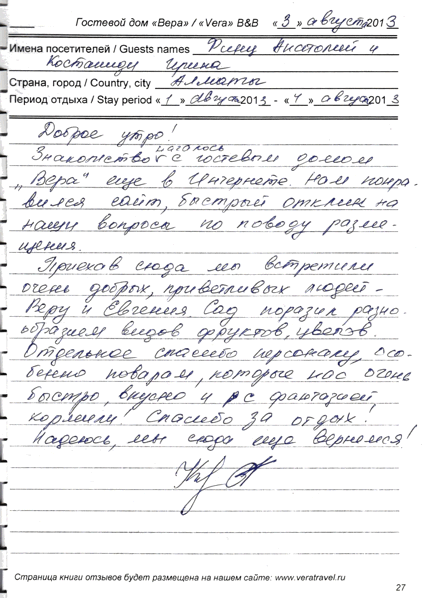 Гостевой дом «Вера» / «Vera» B&B «3» август 2013
Имена посетителей / Guests names Финц Анатолий и
Костаниди Ирина
Страна, город / Country, city Алматы
Период отдыха / Stay period «1» августа 2013 - «4» август 2013
Доброе утро!
началось
Знакомство с гостевым домом
„Вера" еще в Интернете. Нам понра-
вился сайт, быстрый отклик на
наши вопросы по поводу разме-
щения.
Приехав сюда мы встретили
очень добрых, приветливых людей -
Веру и Евгения. Сад поразил разно-
образием видов фруктов, цветов.
Отдельное спасибо персоналу, осо-
бенно поварам, которые нас очень
быстро, вкусно и с фантазией
кормили! Спасибо за отдых!
Надеюсь, мы сюда еще вернемся!
Страница книги отзывов будет размещена на нашем сайте: www.veratravel.ru
27